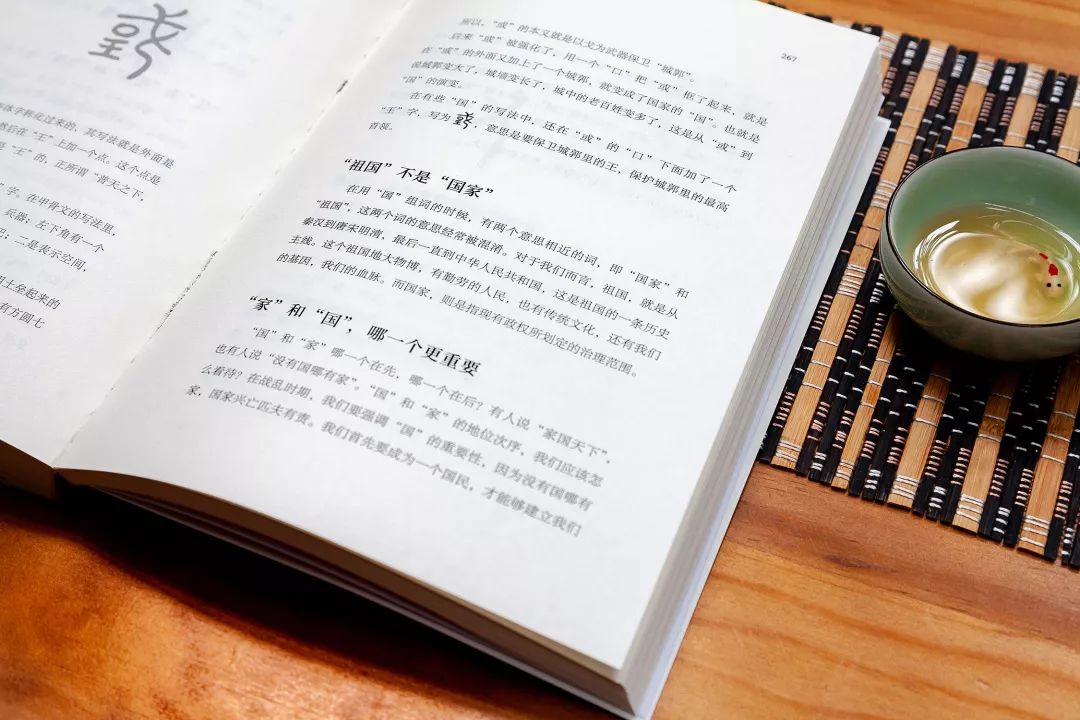 体字转花过来的，其写法就是外面是
然后在“王”上加一个点。这个点是
是“王”的，正所谓“普天之下，
字。在甲骨文的写法里，
兵器；左下角有一
二是表示空间，
用土垒起来的
有方圆七
267
所以，“或”的本义就是以戈为武器保卫“城郭”。
后来“或”被强化了，用一个“口”把“或”框了起来，就是
在“或”的外面又加上了一个城郭，就变成了国家的“国”。也就是
说城郭变大了，城墙变长了，城中的老百姓变多了，这是从“或”到
“国”的演变。
在有些“国”的写法中，还在“或”的“口”下面加了一个
“王”字，写为，意思是要保卫城郭里的王，保护城郭里的最高
首领。
“祖国”不是“国家”
在用“国”组词的时候，有两个意思相近的词，即“国家”和
“祖国”，这两个词的意思经常被混淆。对于我们而言，祖国，就是从
秦汉到唐宋明清，最后一直到中华人民共和国，这是祖国的一条历史
主线。这个祖国地大物博，有勤劳的人民，也有传统文化，还有我们
的基因，我们的血脉。而国家，则是指现有政权所划定的治理范围。
“家”和“国”，哪一个更重要
“国”和“家”哪一个在先，哪一个在后？有人说“家国天下”，
也有人说“没有国哪有家”。“国”和“家”的地位次序，我们应该怎
么看待？在战乱时期，我们要强调“国”的重要性，因为没有国哪有
家，国家兴亡匹夫有责。我们首先要成为一个国民，才能够建立我们